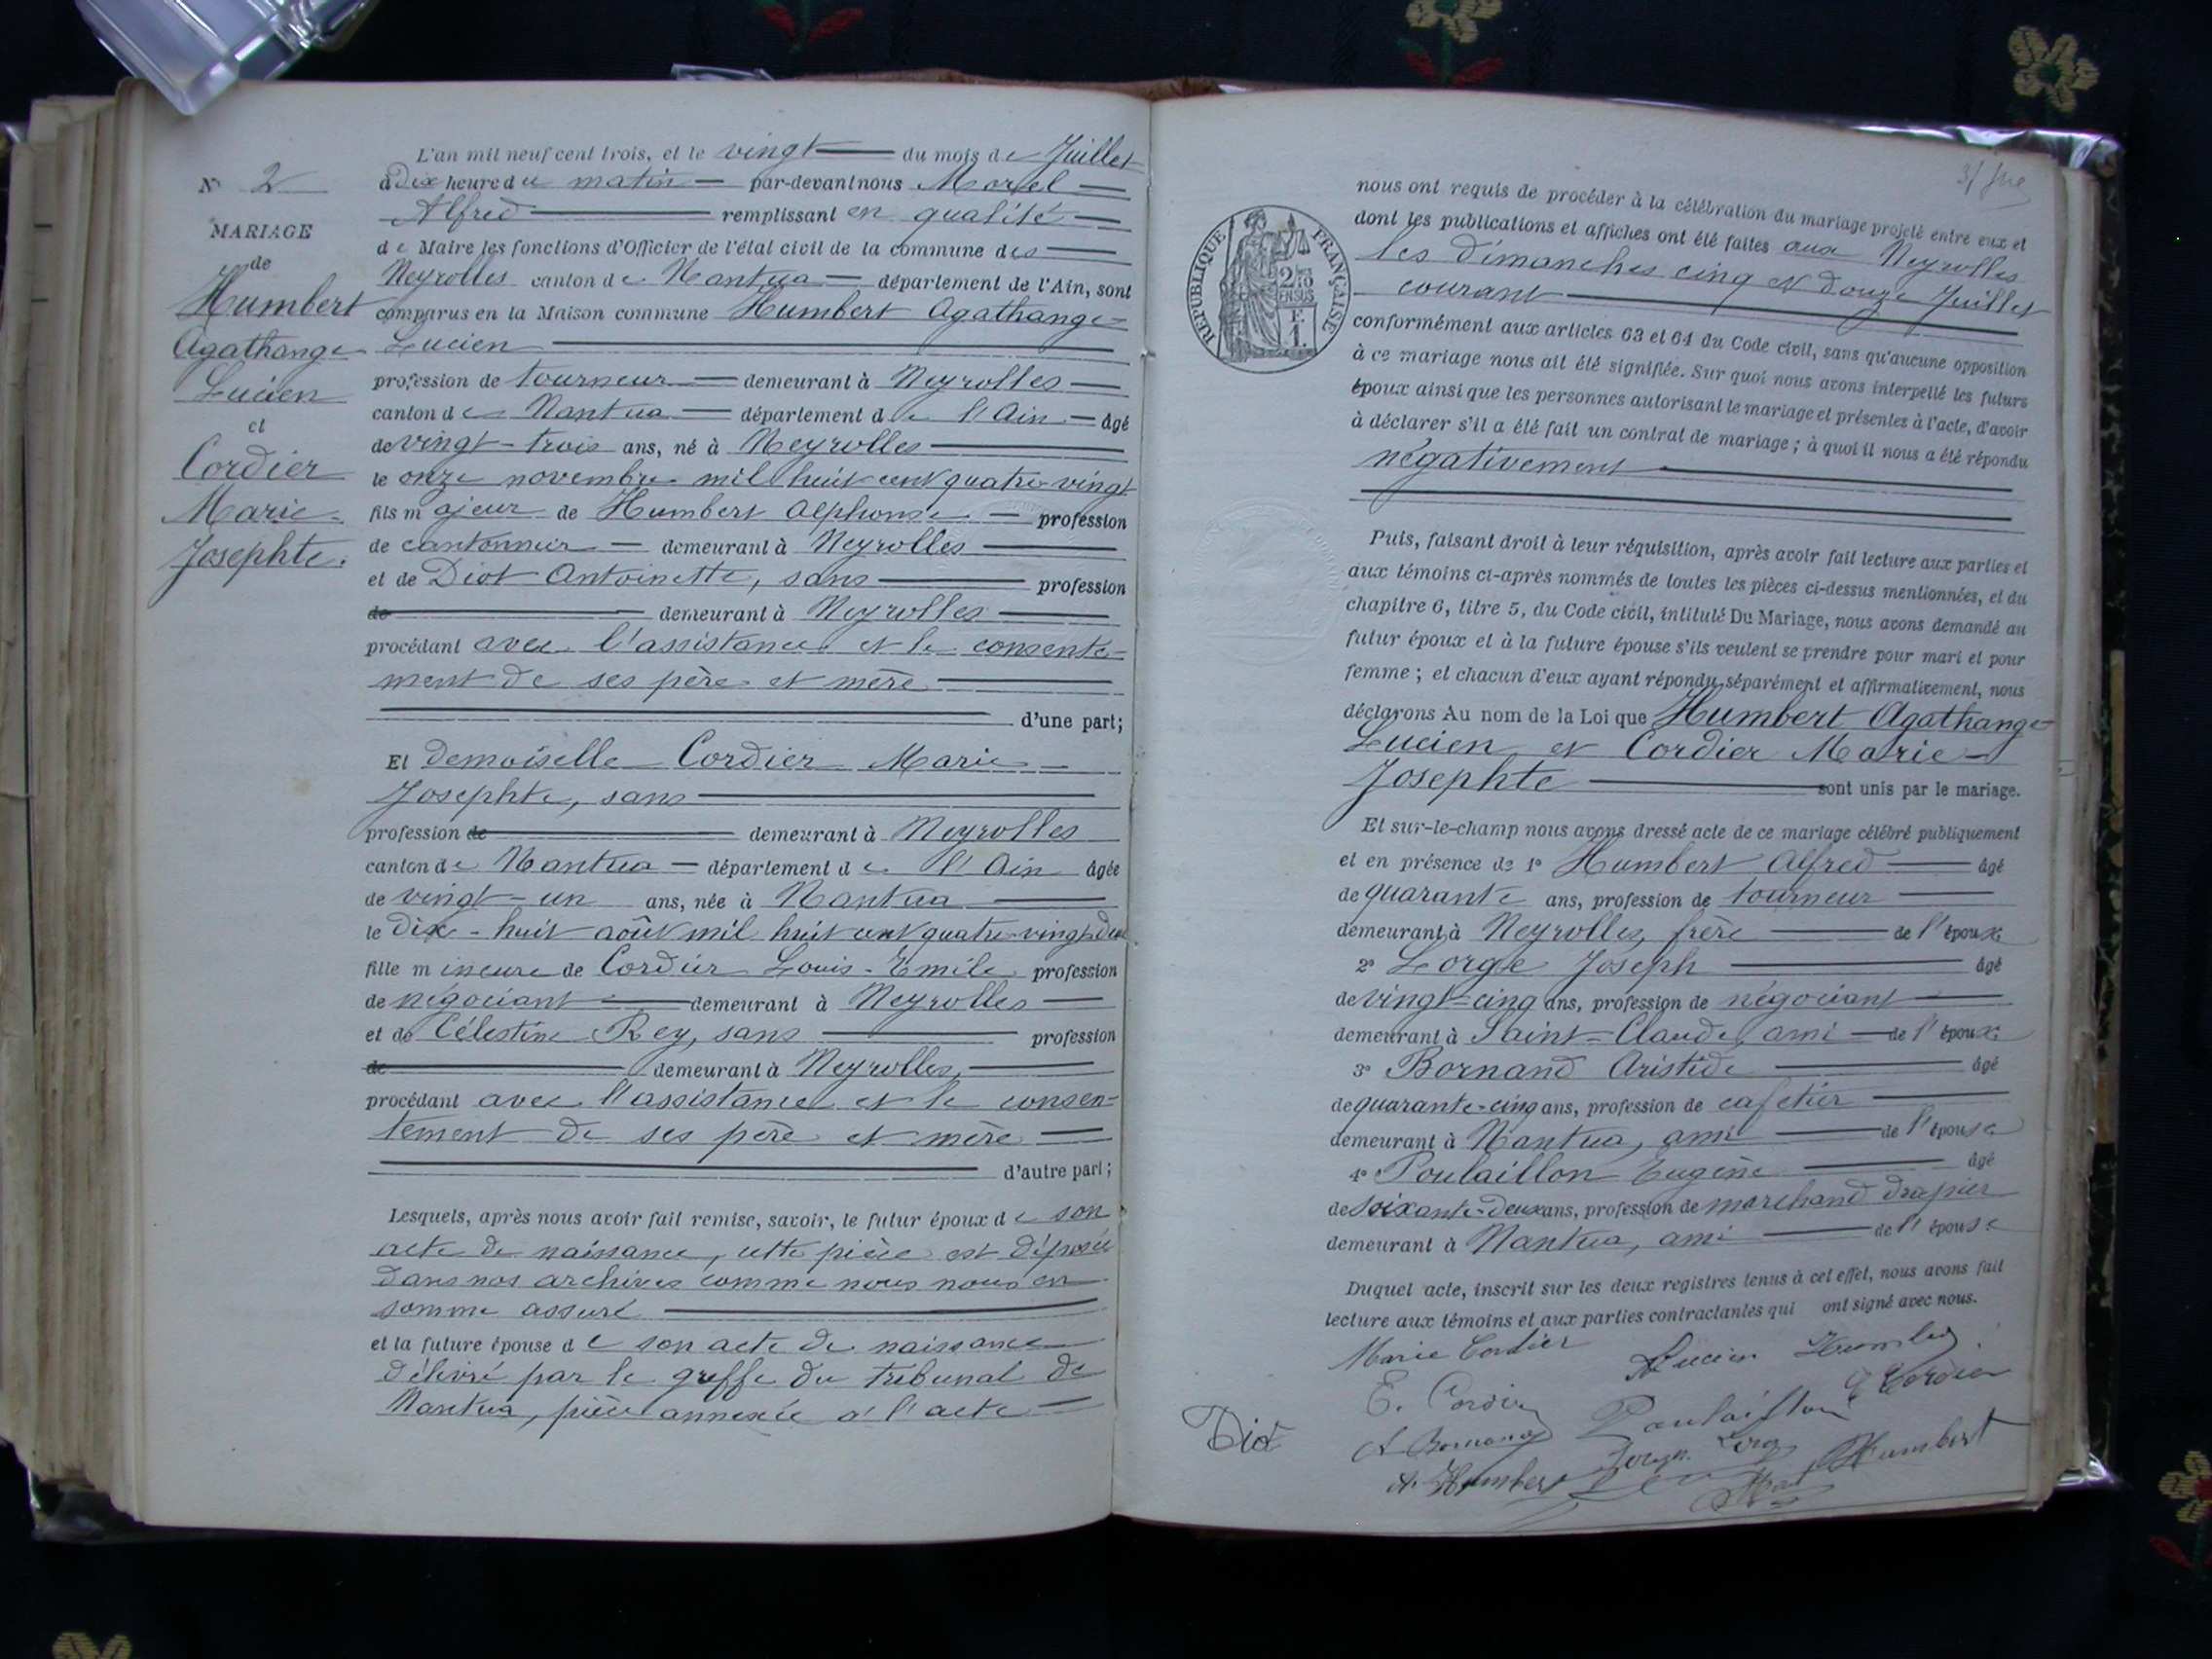 L'an mil neuf cent trois, et le vingt du mois de Juillet
N° 2
à dix heure du matin par-devant nous Morel
Alfred remplissant en qualité
MARIAGE
de Maire les fonctions d'Officier de l'état civil de la commune des
de
Neyrolles canton de Nantua département de l'Ain, sont
Humbert
comparus en la Maison commune Humbert Agathange
Agathange
Lucien
Lucien
profession de tourneur demeurant à Neyrolles
et
canton de Nantua département de l'Ain âgé
Cordier
de vingt-trois ans, né à Neyrolles
Marie
le onze novembre mil huit cent quatre-vingt
Josephte.
fils majeur de Humbert Alphonse profession
de cantonnier demeurant à Neyrolles
et de Diot Antoinette, sans profession
de demeurant à Neyrolles
procédant avec l'assistance et le consente-
ment de ses père et mère
d'une part;
Et demoiselle Cordier Marie
Josephte, sans
profession de demeurant à Neyrolles
canton de Nantua département de l'Ain âgée
de vingt-un ans, née à Nantua
le dix-huit août mil huit cent quatre-vingt-deux
fille mineure de Cordier Louis-Emile profession
de négociant demeurant à Neyrolles
et de Célestine Rey, sans profession
de demeurant à Neyrolles,
procédant avec l'assistance et le consen-
tement de ses père et mère
d'autre part;
Lesquels, après nous avoir fait remise, savoir, le futur époux de son
acte de naissance, cette pièce est déposée
dans nos archives comme nous nous en
somme assuré
et la future épouse de son acte de naissance
délivré par le greffe du tribunal de
Nantua, pièce annexée à l'acte
nous ont requis de procéder à la célébration du mariage projeté entre eux et
dont les publications et affiches ont été faites aux Neyrolles
les dimanches cinq et douze Juillet
courant
RÉPUBLIQUE FRANÇAISE
conformément aux articles 63 et 64 du Code civil, sans qu'aucune opposition
à ce mariage nous ait été signifiée. Sur quoi nous avons interpellé les futurs
époux ainsi que les personnes autorisant le mariage et présentes à l'acte, d'avoir
à déclarer s'il a été fait un contrat de mariage; à quoi il nous a été répondu
négativement
Puis, faisant droit à leur réquisition, après avoir fait lecture aux parties et
aux témoins ci-après nommés de toutes les pièces ci-dessus mentionnées, et du
chapitre 6, titre 5, du Code civil, intitulé Du Mariage, nous avons demandé au
futur époux et à la future épouse s'ils veulent se prendre pour mari et pour
femme; et chacun d'eux ayant répondu séparément et affirmativement, nous
déclarons Au nom de la Loi que Humbert Agathange
Lucien et Cordier Marie
Josephte sont unis par le mariage.
Et sur-le-champ nous avons dressé acte de ce mariage célébré publiquement
et en présence de 1° Humbert Alfred âgé
de quarante ans, profession de tourneur
demeurant à Neyrolles, frère de l'époux
2° Lorge Joseph âgé
de vingt-cinq ans, profession de négociant
demeurant à Saint-Claude, ami de l'époux
3° Bornand Aristide âgé
de quarante-cinq ans, profession de cafetier
demeurant à Nantua, ami de l'épouse
4° Poulaillon Eugène âgé
de soixante-deux ans, profession de marchand drapier
demeurant à Nantua, ami de l'épouse
Duquel acte, inscrit sur les deux registres tenus à cet effet, nous avons fait
lecture aux témoins et aux parties contractantes qui ont signé avec nous.
Marie Cordier Lucien Humbert
E. Cordier Cordier
Diot A. Bornand Poulaillon
A. Humbert Joseph Lorge Humbert